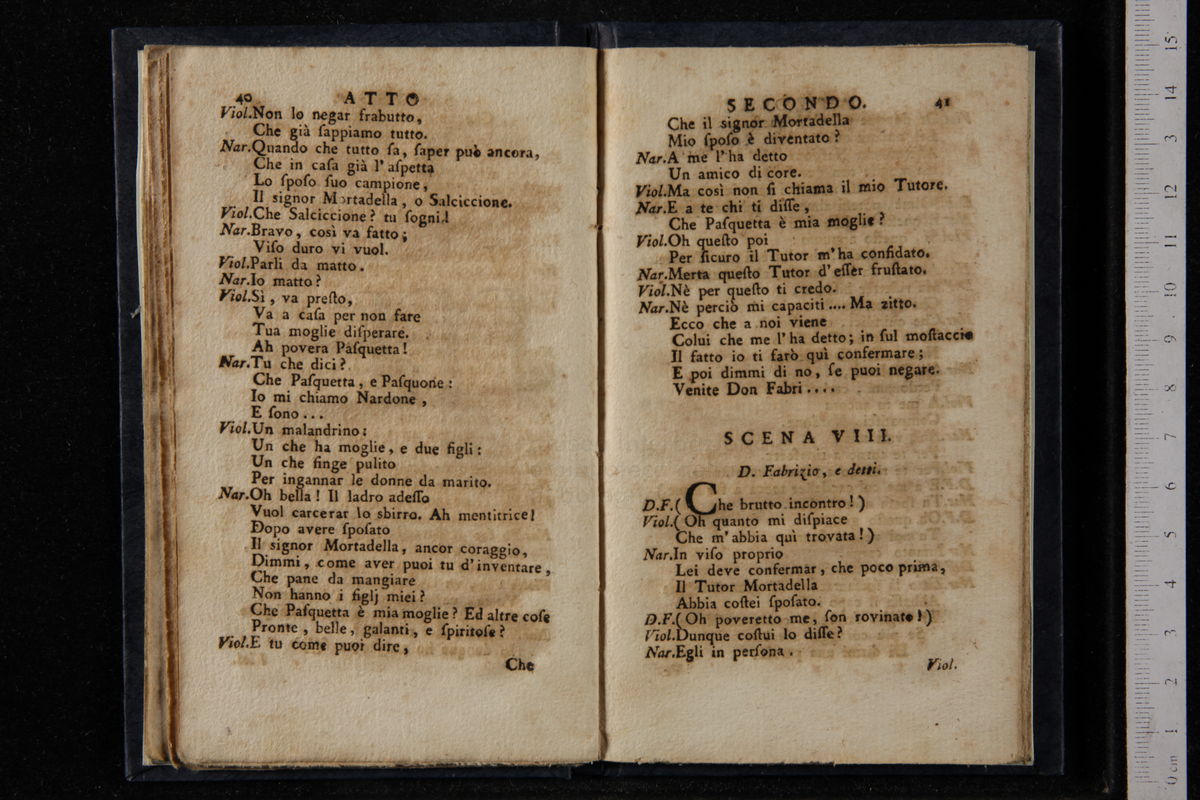 40 ATTO
Viol.Non lo negar frabutto,
Che già ſappiamo tutto.
Nar.Quando che tutto ſa, ſaper può ancora,
Che in caſa già l'aſpetta
Lo ſpoſo ſuo campione,
Il signor Mortadella, o Salciccione.
Viol.Che Salciccione? tu ſogni.!
Nar.Bravo, così va fatto;
Viſo duro vi vuol.
Viol.Parli da matto.
Nar.Io matto?
Viol.Sì, va preſto,
Va a caſa per non fare
Tua moglie diſperare.
Ah povera Paſquetta!
Nar.Tu che dici?
Che Paſquetta, e Paſquone:
Io mi chiamo Nardone,
E ſono...
Viol.Un malandrino:
Un che ha moglie, e due figli:
Un che finge pulito
Per ingannar le donne da marito.
Nar.Oh bella! Il ladro adeſſo
Vuol carcerar lo sbirro. Ah mentitrice!
Dopo avere ſpoſato
Il signor Mortadella, ancor coraggio,
Dimmi, come aver puoi tu d'inventare,
Che pane da mangiare
Non hanno i figlj miei?
Che Paſquetta è mia moglie? Ed altre coſe
Pronte, belle, galanti, e ſpiritoſe?
Viol.E tu come puoi dire,
Che
SECONDO. 41
Che il signor Mortadella
Mio ſpoſo è diventato?
Nar.A me l'ha detto
Un amico di core.
Viol.Ma così non ſi chiama il mio Tutore.
Nar.E a te chi ti diſſe,
Che Paſquetta è mia moglie?
Viol.Oh queſto poi
Per ſicuro il Tutor m'ha confidato.
Nar.Merta queſto Tutor d'eſſer fruſtato.
Viol.Nè per queſto ti credo.
Nar.Nè perciò mi capaciti.... Ma zitto.
Ecco che a noi viene
Colui che me l'ha detto; in ſul moſtaccio
Il fatto io ti farò quì confermare;
E poi dimmi di no, ſe puoi negare.
Venite Don Fabri....
SCENA VIII.
D. Fabrizio, e detti.
D.F.(Che brutto incontro!)
Viol.(Oh quanto mi diſpiace
Che m'abbia quì trovata!)
Nar.In viſo proprio
Lei deve confermar, che poco prima,
Il Tutor Mortadella
Abbia coſtei ſpoſato.
D.F.(Oh poveretto me, ſon rovinato!)
Viol.Dunque coſtui lo diſſe?
Nar.Egli in perſona.
Viol.
0 cm 1 2 3 4 5 6 7 8 9 10 11 12 13 14 15